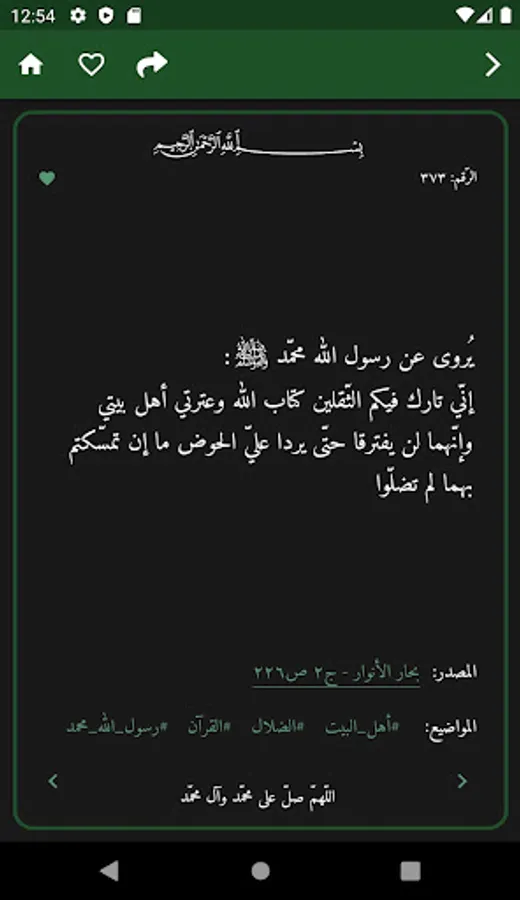 12:54
بِسْمِ اللَّهِ الرَّحْمَٰنِ الرَّحِيمِ
الرّقم: ٣٧٣
يُروى عن رسول الله محمّد ﷺ :
إنّي تارك فيكم الثّقلين كتاب الله وعترتي أهل بيتي
وإنّهما لن يفترقا حتّى يردا عليّ الحوض ما إن تمسّكتم
بهما لم تضلّوا
المصدر: بحار الأنوار - ج٢ ص٢٢٦
المواضيع: #أهل_البيت #الضلال #القرآن #رسول_الله_محمد
اللّهمّ صلّ على محمّد وآل محمّد